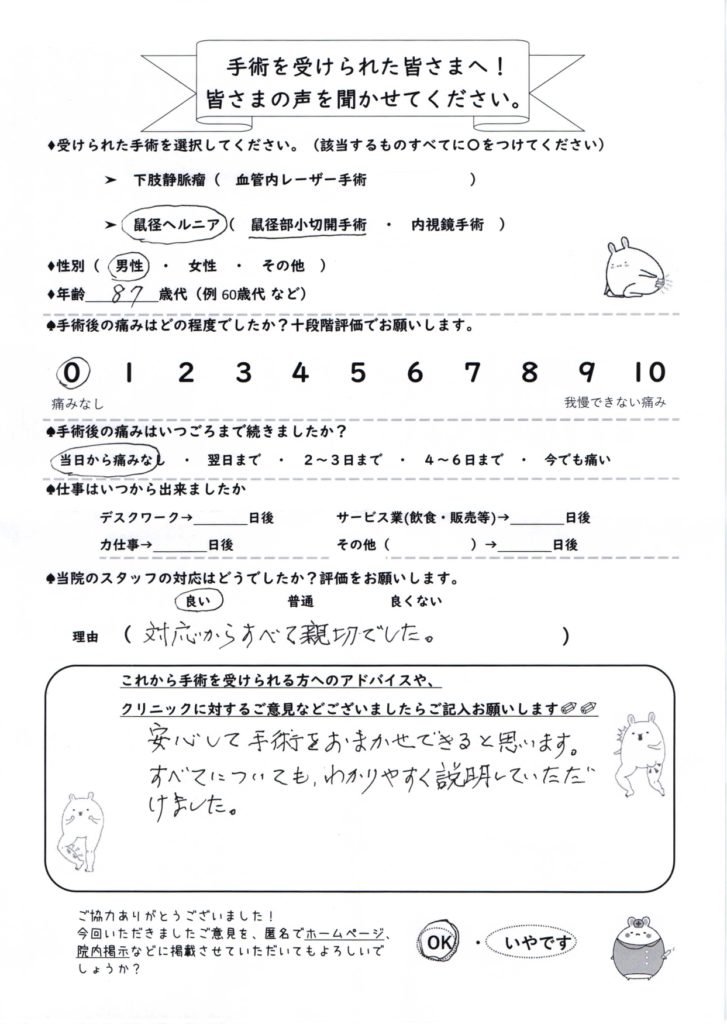 手術を受けられた皆さまへ！
皆さまの声を聞かせてください。
♦受けられた手術を選択してください。（該当するものすべてに〇をつけてください）
➤ 下肢静脈瘤（ 血管内レーザー手術 ）
➤ 鼠径ヘルニア（ 鼠径部小切開手術 ・ 内視鏡手術 ）
♦性別（ 男性 ・ 女性 ・ その他 ）
♦年齢 87 歳代（例 60歳代 など）
♠手術後の痛みはどの程度でしたか？十段階評価でお願いします。
0 1 2 3 4 5 6 7 8 9 10
痛みなし 我慢できない痛み
♠手術後の痛みはいつごろまで続きましたか？
当日から痛みなし ・ 翌日まで ・ 2～3日まで ・ 4～6日まで ・ 今でも痛い
♠仕事はいつから出来ましたか
デスクワーク→＿＿＿＿日後 サービス業(飲食・販売等)→＿＿＿＿日後
力仕事→＿＿＿＿日後 その他（ ）→＿＿＿＿日後
♠当院のスタッフの対応はどうでしたか？評価をお願いします。
良い 普通 良くない
理由 （ 対応からすべて親切でした。 ）
これから手術を受けられる方へのアドバイスや、
クリニックに対するご意見などございましたらご記入お願いします
安心して手術をおまかせできると思います。
すべてについても、わかりやすく説明していただ
けました。
ご協力ありがとうございました！
今回いただきましたご意見を、匿名でホームページ、
院内掲示などに掲載させていただいてもよろしいで
しょうか？
OK ・ いやです